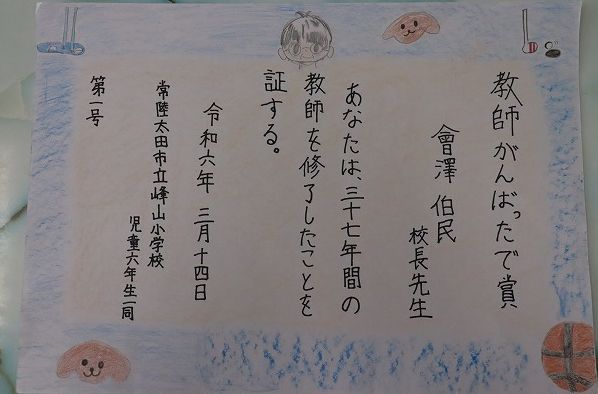 教師がんばったで賞
會澤 伯民
校長先生
あなたは、三十七年間の
教師を修了したことを
証する。
令和六年 三月十四日
常陸太田市立峰山小学校
児童六年生一同
第一号